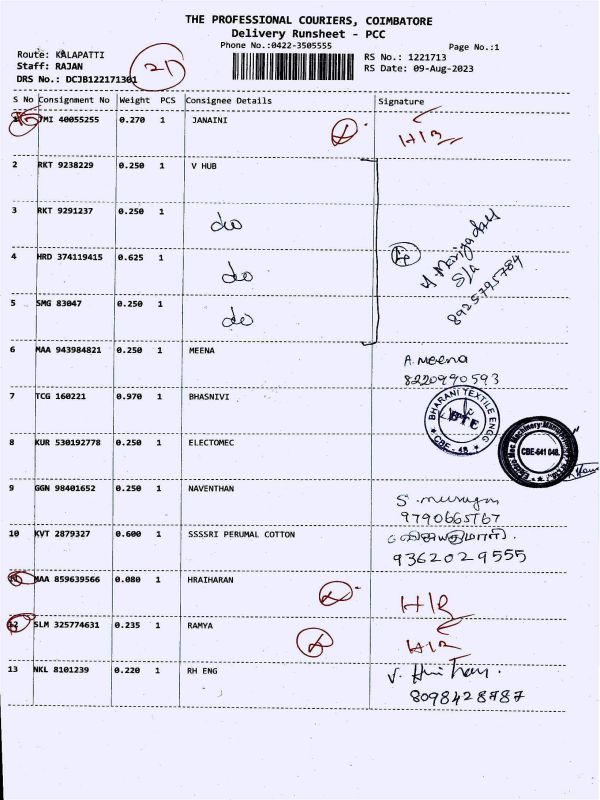 THE PROFESSIONAL COURIERS, COIMBATORE
Delivery Runsheet - PCC
Phone No.:0422-3505555
Page No.:1
Route: KALAPATTI
Staff: RAJAN
DRS No.: DCJB122171301
21
RS No.: 1221713
RS Date: 09-Aug-2023
S No Consignment No Weight PCS Consignee Details Signature
1 TMI 40055255 0.270 1 JANAINI
2 RKT 9238229 0.250 1 V HUB
3 RKT 9291237 0.250 1 do
4 HRD 374119415 0.625 1 do
S/A
8925795784
5 SMG 83047 0.250 1 do
6 MAA 943984821 0.250 1 MEENA A. Meena
8220990593
7 TCG 160221 0.970 1 BHASNIVI
BHARANI TEXTILE ENGG
BTE
CBE - 48
8 KUR 530192778 0.250 1 ELECTOMEC
CBE-641 048.
9 GGN 98401652 0.250 1 NAVENTHAN S. murugan
9790665767
10 KVT 2879327 0.600 1 SSSSRI PERUMAL COTTON
9362029555
11 MAA 859639566 0.080 1 HRAIHARAN
12 SLM 325774631 0.235 1 RAMYA
13 NKL 8101239 0.220 1 RH ENG
8098428787